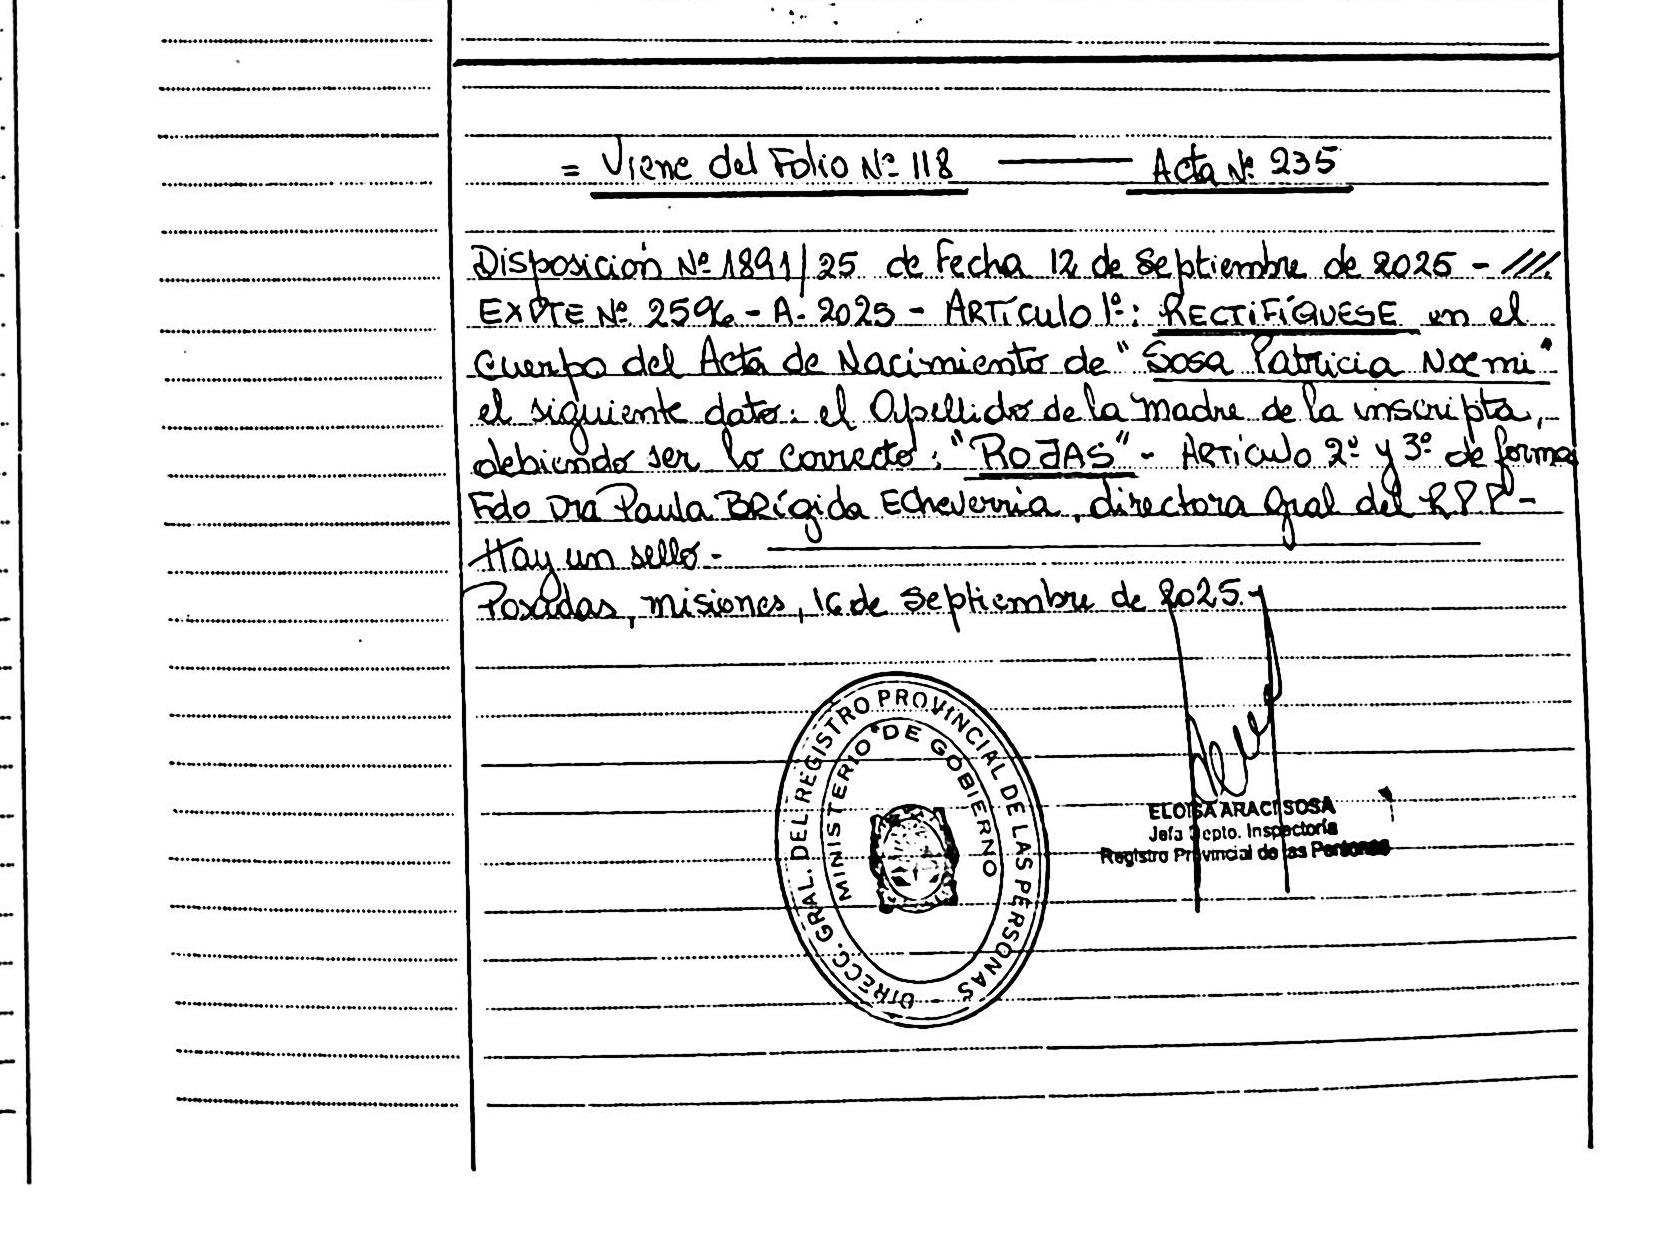 = Viene del Folio Nº 118 —— Acta Nº 235
Disposición Nº 1891/25 de Fecha 12 de Septiembre de 2025 - ///.
EXPTE Nº 2596 - A - 2025 - ARTÍCULO 1º: RECTIFÍQUESE en el
Cuerpo del Acta de Nacimiento de "Sosa Patricia Noemi"
el siguiente dato: el Apellido de la Madre de la inscripta,
debiendo ser lo correcto: "ROJAS" - ARTÍCULO 2º y 3º de forma
Fdo Dra Paula BRígida Echeverria, directora Gral del RPP -
Hay un sello -
Posadas, Misiones, 16 de Septiembre de 2025.-
DIRECC. GRAL. DEL REGISTRO PROVINCIAL DE LAS PERSONAS -
MINISTERIO DE GOBIERNO
ELOISA ARACI SOSA
Jefa Depto. Inspectoría
Registro Provincial de las Personas